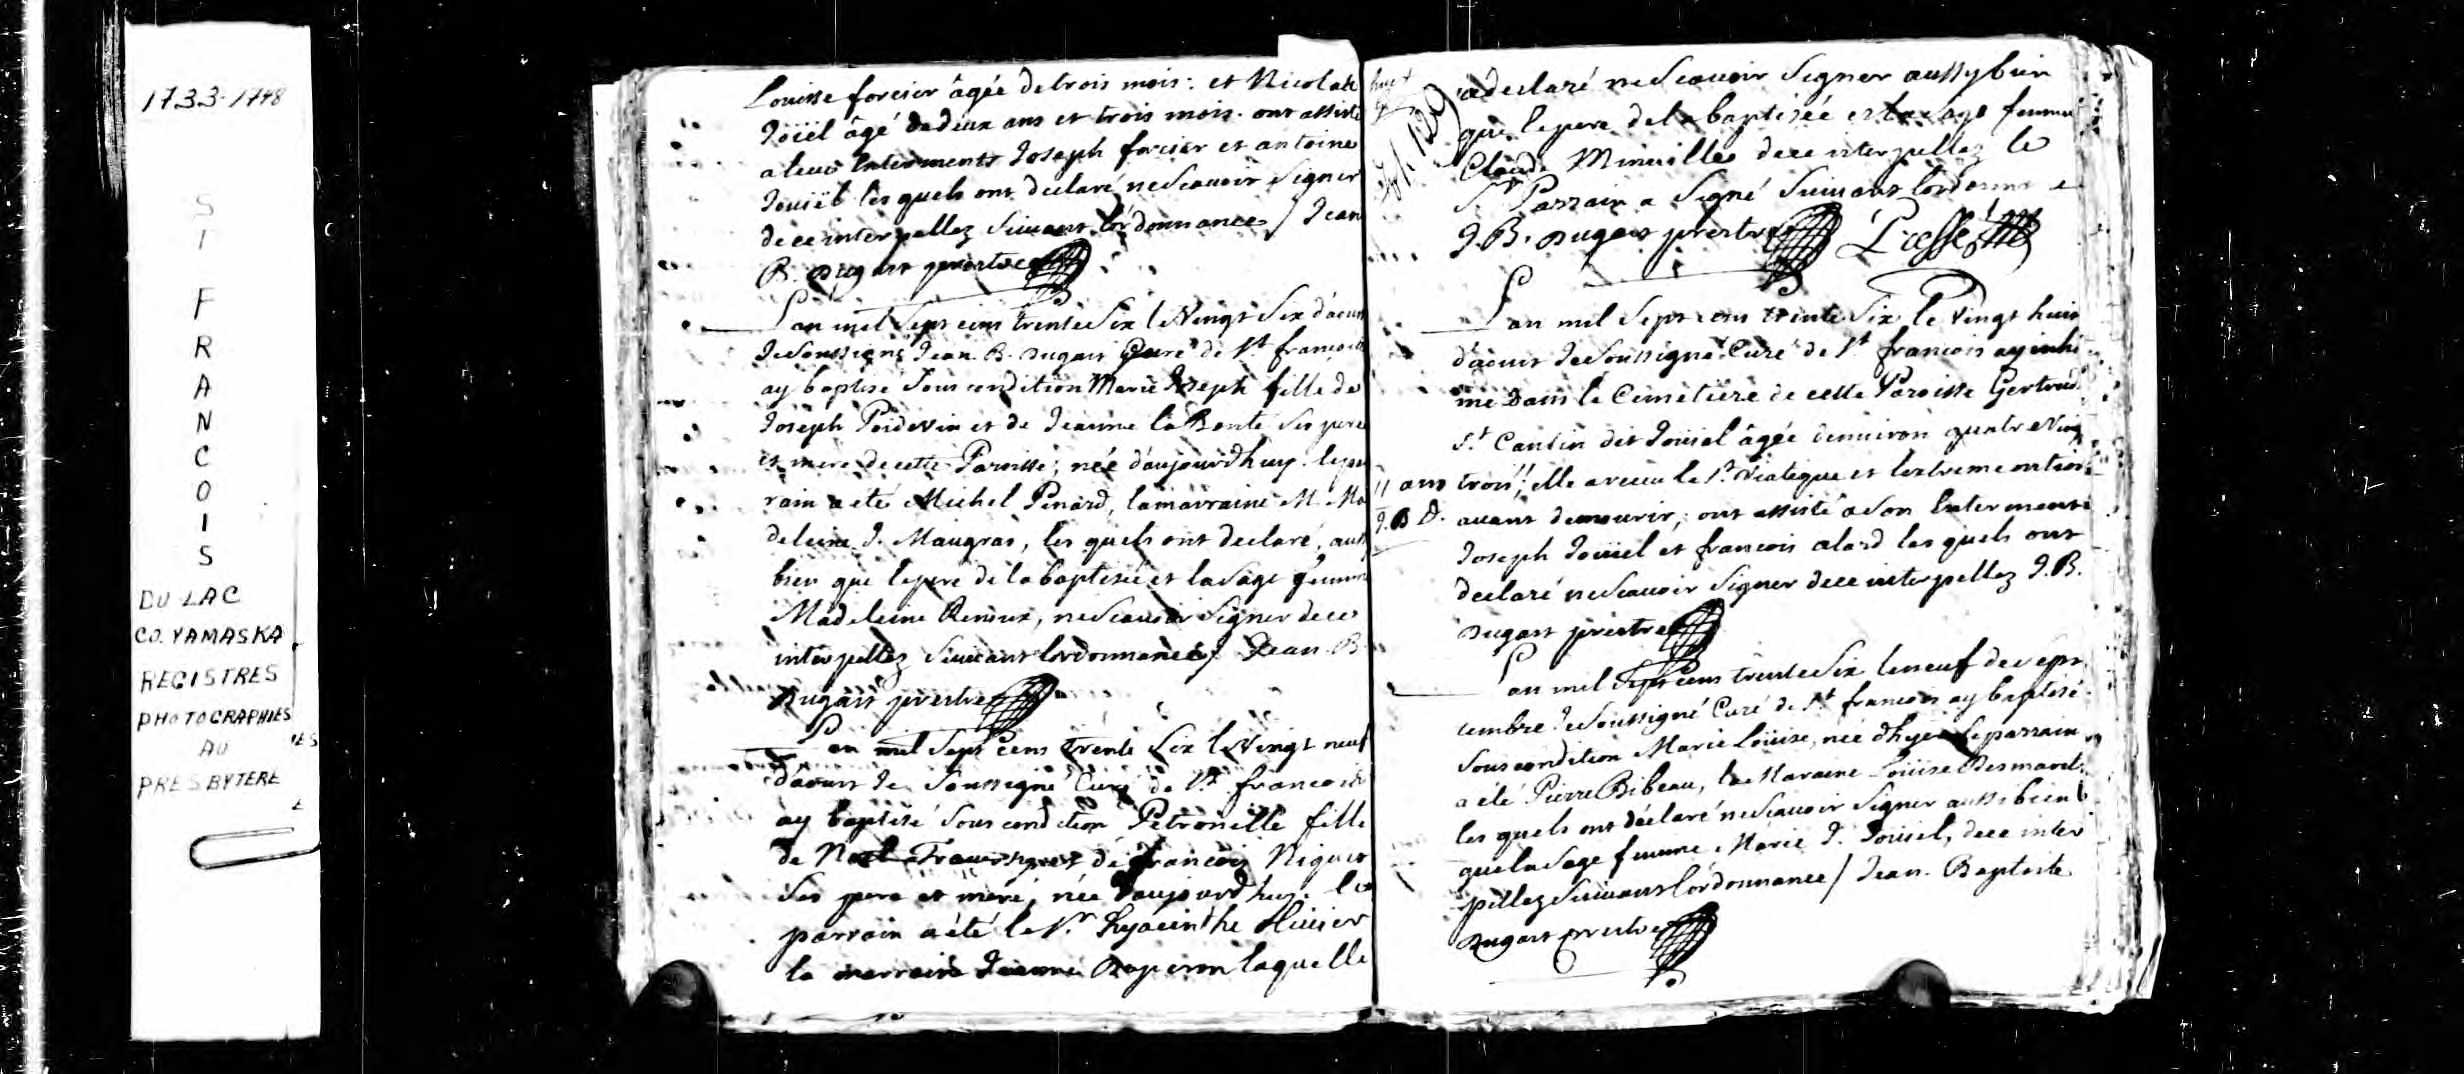 1733-1748
S
T
F
R
A
N
C
O
I
S
DU LAC
CO. YAMASKA
REGISTRES
PHOTOGRAPHIES
AU
PRESBYTERE
Louisse forcier âgée de trois mois: et Nicolas
âgé de deux ans et trois mois. ont assisté
a leur Enterments Joseph forcier et antoine
les quels ont declaré ne Scauoir Signer
de ce interpellez Suiuant l'ordonnance / Jean
B. Dugast prestre
L'an mil Sept cens trente Six le Vingt Six d'aoust
Je Soussigné Jean. B. Dugast Curé de St. francois
ay baptisé Sous condition Marie Joseph fille de
Joseph Poideuin et de Jeanne la Bonté Ses pere
et mere de cette Paroisse, née d'aujourdhuy. le par
rain a été Michel Pinard, la marraine M. Ma
deleine J. Maugras, les quels ont declaré, aussi
bien que le pere de la baptisée et la Sage femme
Madeleine, ne Scauoir Signer de ce
interpellez Suiuant l'ordonnance / Jean B.
Dugast prestre
L'an mil Sept Cens trente Six le Vingt neuf
d'aoust Je Soussigné Curé de St. francois
ay baptisé Sous condition Petronille fille
de francois Niquet
Ses pere et mere, née d'aujourdhuy. le
parrain a été le Sr. hyacinthe Oliuier
la marraine Jeanne laquelle
a declaré ne Scauoir Signer aussy bien
que le pere de la baptisée et la Sage femme
Claude Minuille de ce interpellez le
Sr. Parrain a Signé Suiuant l'ordonnance
J. B. Dugast prestre
L'an mil Sept cens trente Six le Vingt huit
d'aoust Je Soussigné Curé de St. francois ay inhu
mé Dans le Cimetiere de cette Paroisse Gertrud
St. Cantin dit âgée d'enuiron quatre Ving
11 ans trois // elle a receu le St. Viatique et l'extreme onction
J. B D. auant de mourir; ont assisté a Son Enterment
Joseph et francois alard les quels ont
declaré ne Scauoir Signer de ce interpellez J. B.
Dugast prestre
L'an mil Sept Cens trente Six le neuf de Sept
tembre Je Soussigné Curé de St. francois ay baptisé
Sous condition Marie Louise, née d'hyer le parrain
a été Pierre Bibeau, la Maraine Louise Desmarets
les quels ont déclaré ne Scauoir Signer aussi bien
que la Sage femme Marie J., de ce inter
pellez Suiuant l'ordonnance / Jean. Baptiste
Dugast prestre